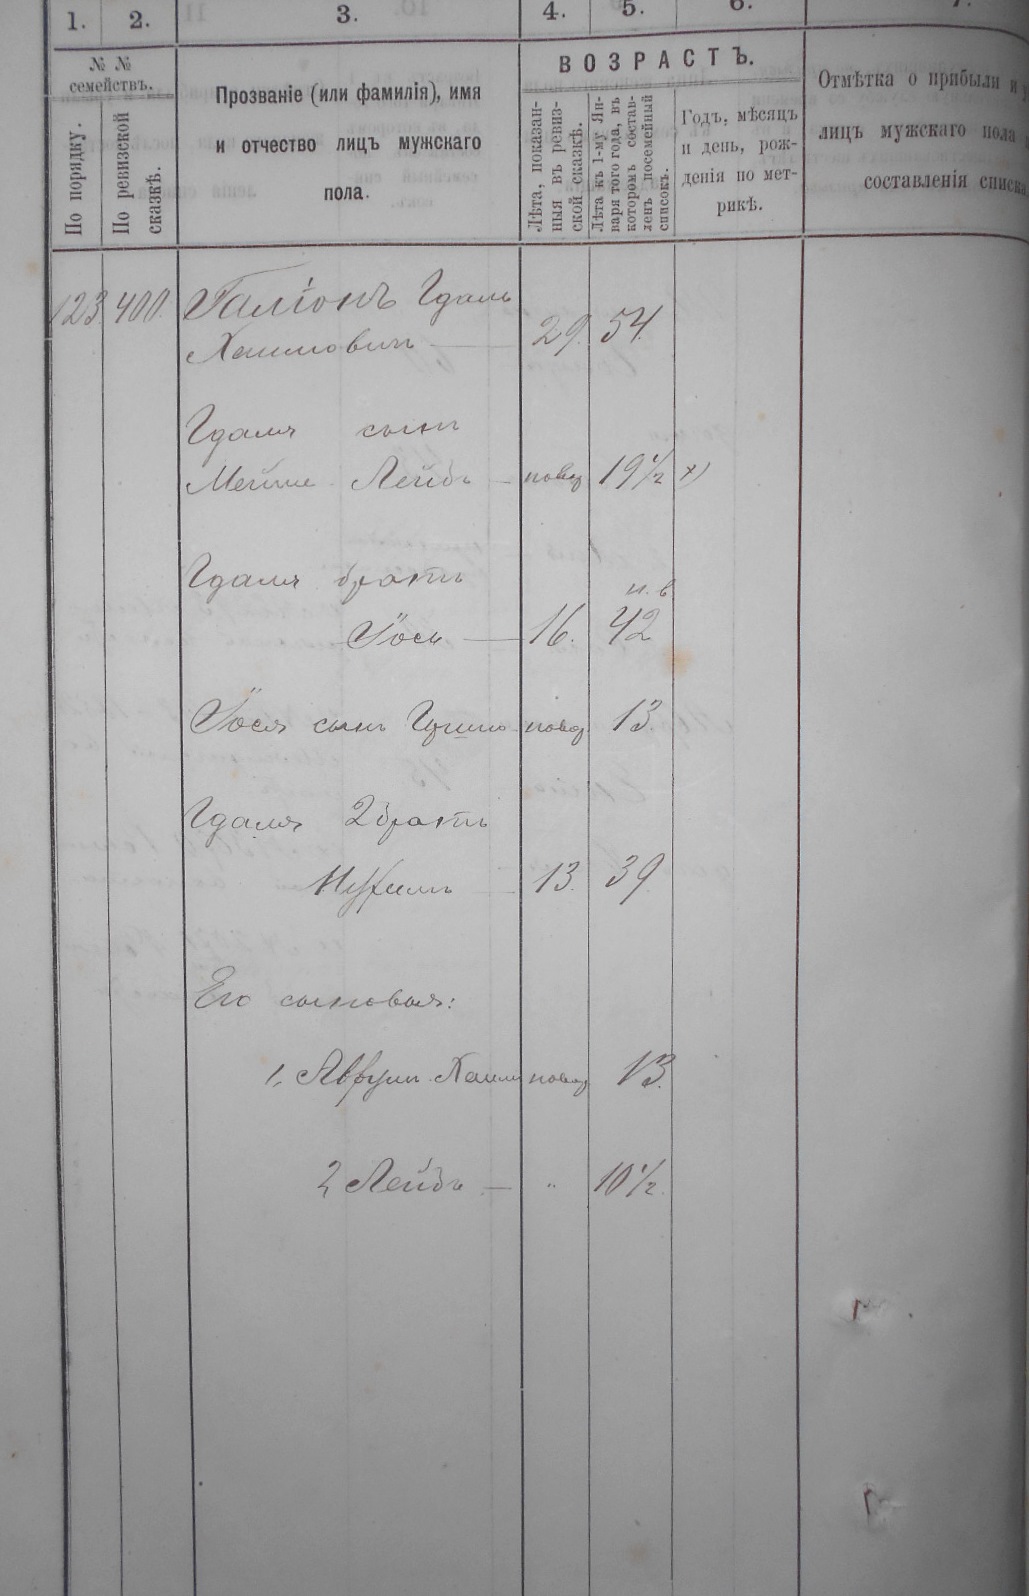 1. 2. 3. 4. 5. 6. 7.
№ №
семействъ.
По порядку.
По ревизской
сказкѣ.
Прозваніе (или фамилія), имя
и отчество лицъ мужскаго
пола.
ВОЗРАСТЪ.
Лѣта, показан-
ныя въ ревиз-
ской сказкѣ.
Лѣта къ 1-му Ян-
варя того года, въ
которомъ состав-
ленъ посемейный
списокъ.
Годъ, мѣсяцъ
и день, рож-
денія по мет-
рикѣ.
Отмѣтка о прибыли и
лицъ мужскаго пола
составленія списка
123. 400. Галіонъ Гдаль
Хаимовичъ 29. 54.
Гдаля сынъ
Мейше Лейбъ — новор 19½ х)
Гдаля братъ н. в
Іось — 16. 42
Іося сынъ новор 13.
Гдаля 2 братъ
Нухимъ 13. 39
Его сыновья:
1, Аврумъ Хаимъ новор 13.
2, Лейбъ — " 10½.